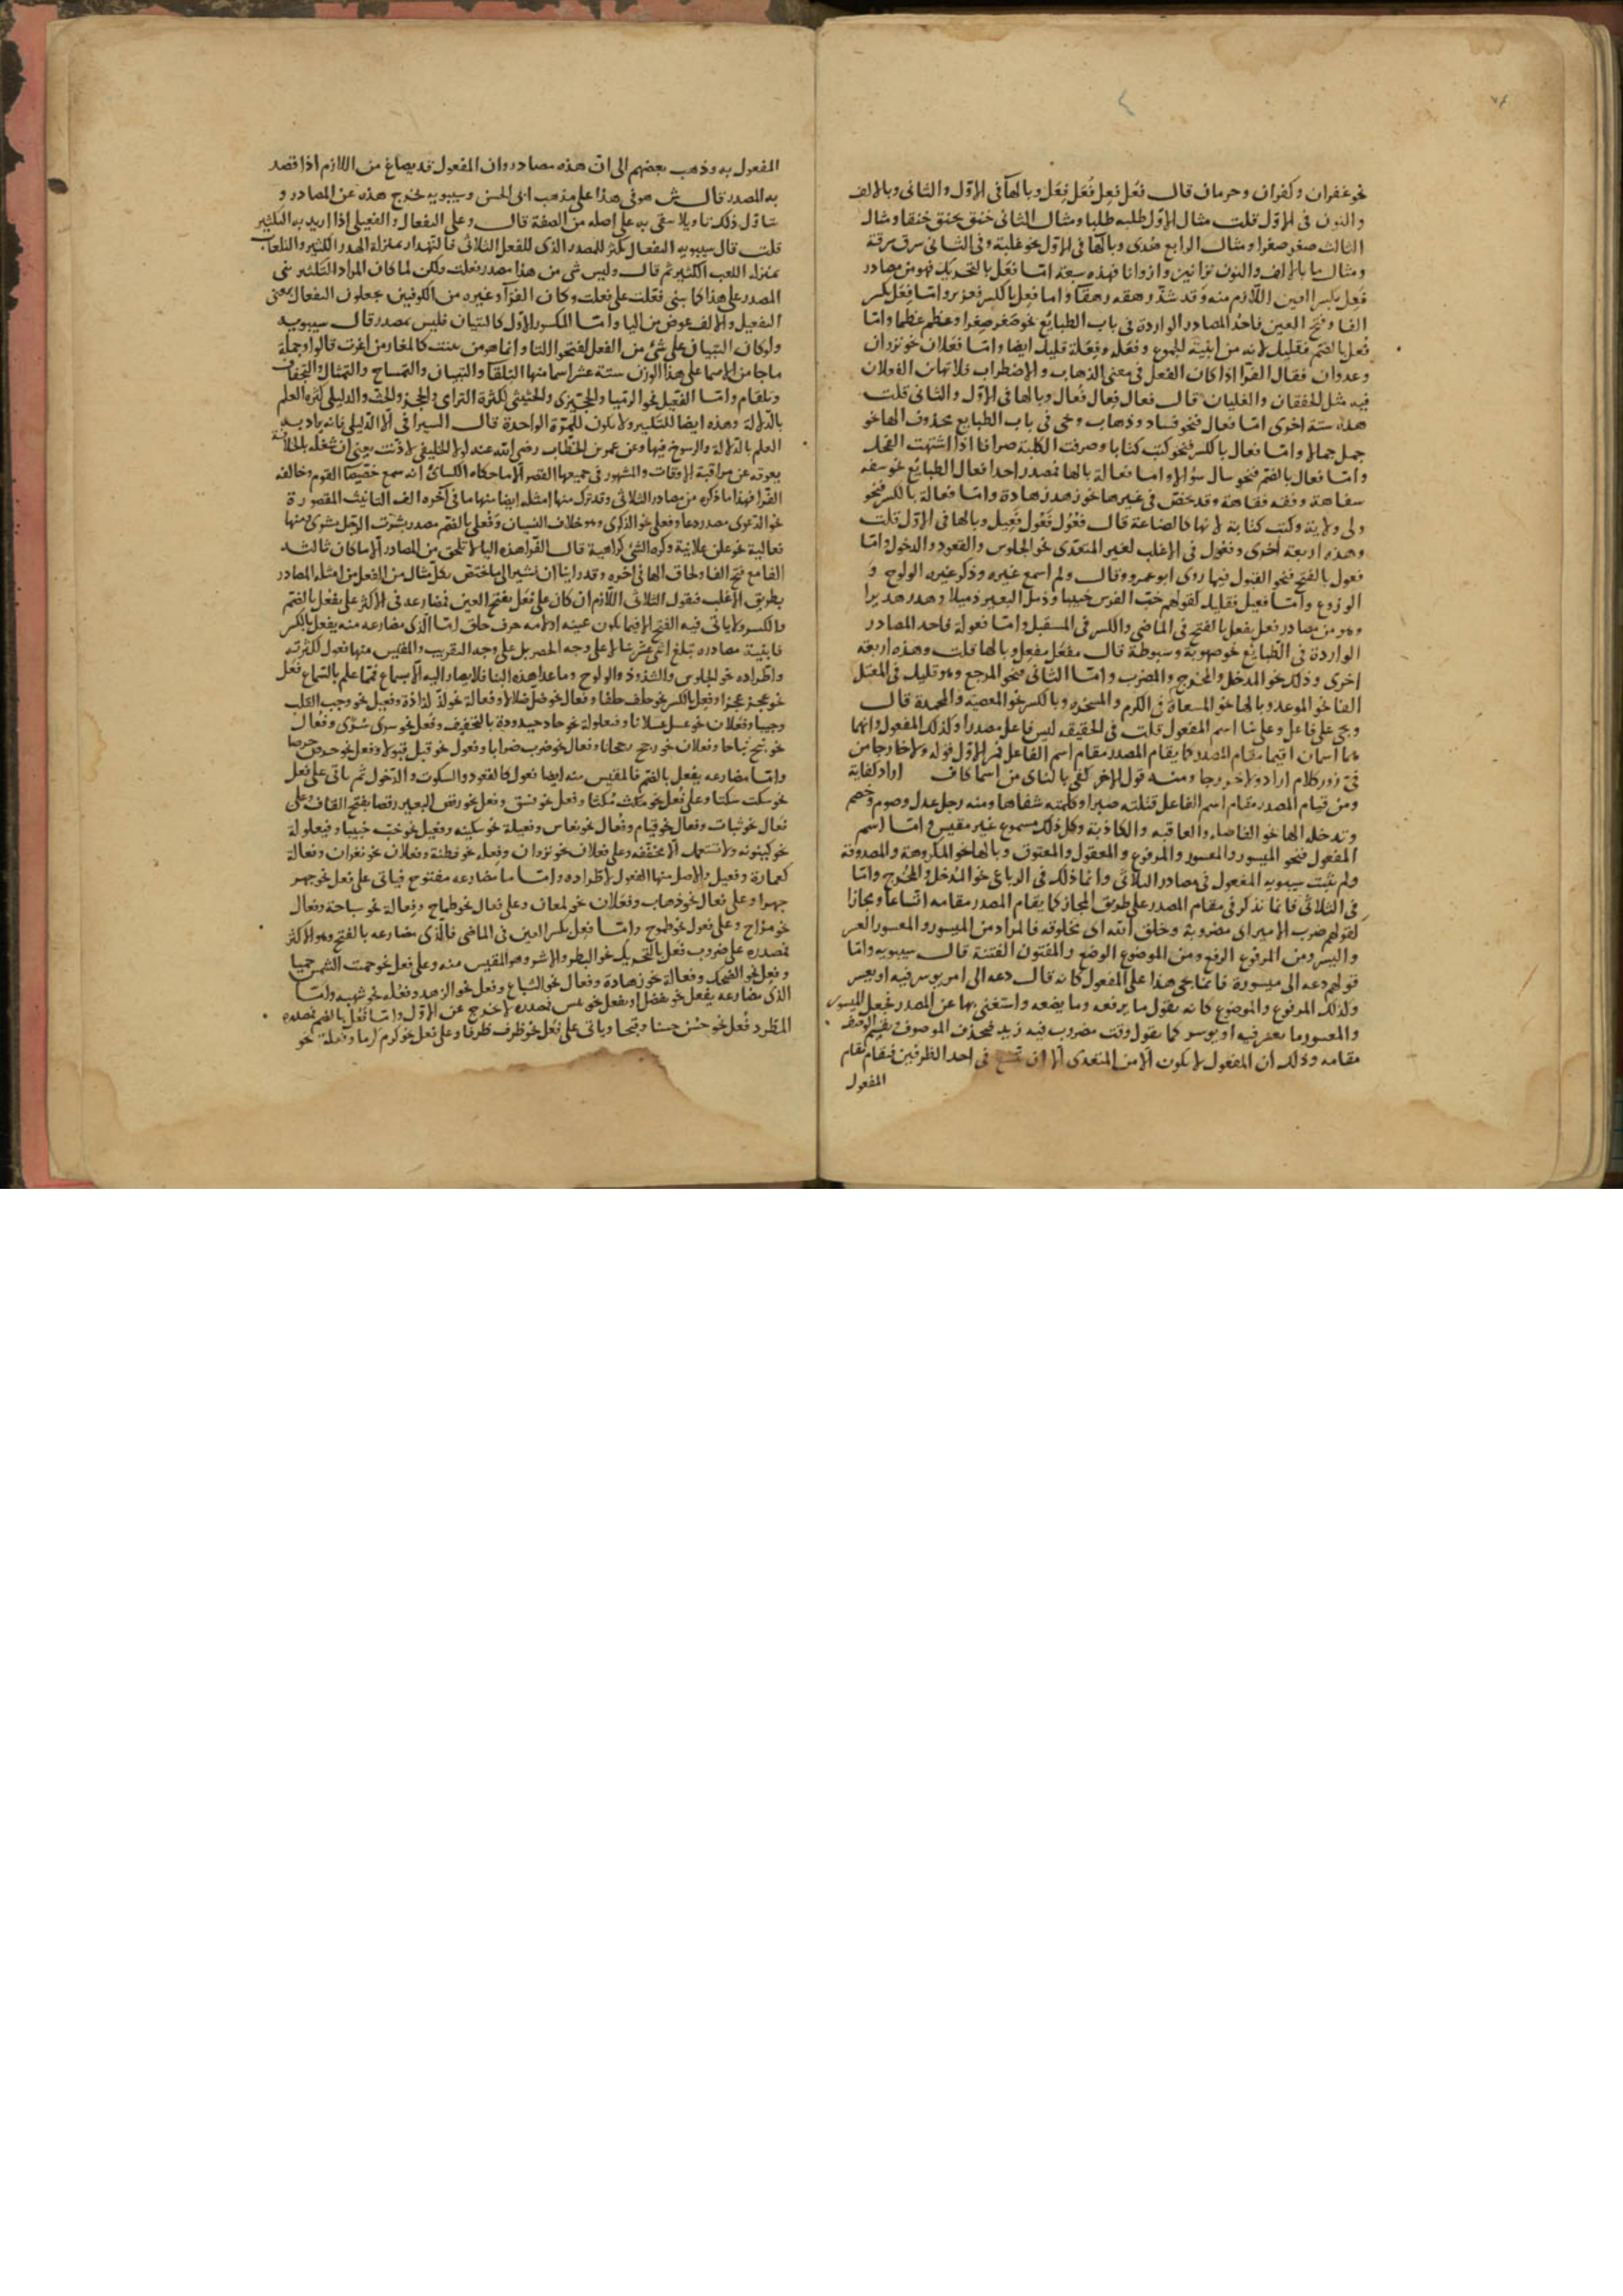 نحو غفران وكفران وحرمان قال فَعَل فَعِل فُعَل فِعَل وبالهآ في الاول والثاني وبالالف
والنون في الاول قلت مثال الاول طلبه طلبا ومثال الثاني خنق يخنق خنقا ومثال
الثالث صغر صغرا ومثال الرابع هُدى وبالها في الاول نحو غلبة وفي الثاني سرق سرقة
ومثال ما بالالف والنون نزا نزوانا فهذه سبعة امّا فَعَل بالتحريك فهو من مصادر
فَعِل بكسر العين اللازم منه وقد شذّ رهقه رهقا واما فعِل بالكسر فعزيز وامّا فِعَل بكسر
الفا وفتح العين فاحد المصادر الواردة في باب الطبايع نحو صَغر صِغرا وعظم عظما وامّا
فُعَل بالضم فقليل لانه من ابنية الجموع وفَعَلة وفَعِلة قليل ايضا وامّا فَعَلان نحو نزوان
وعدوان فقال الفرّا اذا كان الفعل في معنى الذهاب والاضطراب فلا تهابن الفعلان
فيه مثل الخفقان والغليان قال فَعال فِعال فُعال وبالها في الاول والثاني قلت
هذه ستة اخرى امّا فَعال فنحو فساد وذهاب وحي في باب الطبايع محذوف الها نحو
جمل جمالا وامّا فعال بالكسر فنحو كتب كتابا وصرفت الكلبة صرافا اذا اشتهت الفحل
وامّا فعال بالضم فنحو سال سؤالا واما فعالة بالها فمصدر احد افعال الطبايع نحو سفه
سفاهة وفقه فقاهة وقد يخصّ في غيرها نحو زهد زهادة وامّا فعالة بالكسر فنحو
ولي ولاية وكتب كتابة لانها كالصناعة قال فُعُول فَعُول فَعِيل وبالها في الاول قلت
وهذه اربعة اخرى وفعول في الاغلب لغير المتعدّى نحو الجلوس والقعود والدخول وامّا
فعول بالفتح فنحو القبول فيها روى ابو عمرو وقال ولم اسمع غيره وذكر غيره الولوع و
الوزوع وامّا فعيل فقليل كقولهم خبّ الفرس خبيبا وذمل البعير ذميلا وهدر هديرا
وهو من مصادر فعل يفعل بالفتح في الماضي والكسر في المستقبل وامّا فعولة فاحد المصادر
الواردة في الطبايع نحو صهوبة وسبوطة قال مَفعَل مَفعِل وبالها قلت وهذه اربعة
اخرى وذلك نحو المدخل والمخرج والمضرب وامّا الثاني فنحو المرجع وهو قليل في المعتل
الفا نحو الموعد وبالها نحو المسعاة في الكرم والمسخرة وبالكسر نحو المعصية والمحمدة قال
ويجي على فاعل وعلى بنا اسم المفعول قلت في الحقيقة ليس فاعل مصدرا وكذلك المفعول وانما
هما اسمان اقيما مقام المصدر كما يقام المصدر مقام اسم الفاعل فمن الاول قوله ولا خارجا من
فيّ زور كلام اراد ولا خروجا ومنه قول الاخر كفي بالناي من اسما كاف اراد كفاية
ومن قيام المصدر مقام اسم الفاعل قتلته صبرا وكلمته شفاها ومنه رجل عدل وصوم وخصم
وتدخله الها نحو الفاضله والعاقبه والكاذبة وكل ذلك مسموع غير مقيس وامّا اسم
المفعول فنحو الميسور والمعسور والمرفوع والمعقول والمعتوق وبالها نحو المكروهة والمصدوقة
ولم يثبت سيبويه المفعول في مصادر الثلاثي وانما ذلك في الرباعي نحو المُدخل والمخرج وامّا
في الثلاثي فانما نذكر في مقام المصدر على طريق المجاز كما يقام المصدر مقامه اتساعا ومجازا
كقولهم ضرب الامير اى مضروبه وخلق الله اى مخلوقه فالمراد من الميسور والمعسور العسر
واليسر ومن المرفوع الرفع ومن الموضوع الوضع والمفتون الفتنة قال سيبويه وامّا
قولهم دعه الى ميسورة فانما يجي هذا على المفعول كانه قال دعه الى امر يوسر فيه او يعسر
وكذلك المرفوع والموضوع كانه يقول ما يرفعه وما يضعه واستغنى بها عن المصدر فجعل الميسور
والمعسور ما يعسر فيه او يوسر كما يقول وقت مضروب فيه زيد فيحذف الموصوف وتقيم الصفة
مقامه وذلك ان المفعول لا يكون الا من المتعدى الا ان في احد الظرفين فيقام مقام
المفعول
المفعول به وذهب بعضهم الى ان هذه مصادر وان المفعول قد يصاغ من اللازم اذا قصد
به المصدر قال ش هو في هذا على مذهب ابى الحسن وسيبويه يخرج هذه عن المصادر و
يتاوّل ذلك تاويلا يبقى به على اصله من الصفة قال وعلى التفعال والفعيلى اذا اريد به التكثير
قلت قال سيبويه التفعال يكثر للمصدر الذى للفعل الثلاثي فالتهدار بمنزلة الهدر الكثير والتلعاب
بمنزلة اللعب الكثير ثم قال وليس شى من هذا مصدر فعلت ولكن لما كان المراد التكثير بنى
المصدر على هذا كما بنى فعّلت على فعلت وكان الفرّآ وغيره من الكوفيين يجعلون التفعال بمعنى
التفعيل والالف عوض من اليا وامّا المكسور الاول كالتبيان فليس بمصدر قال سيبويه
ولو كان التبيان على شئ من الفعل لفتحوا التا وانما هو من بينت كالمغار من اغرت قالوا وجملة
ما جا من الاسما على هذا الوزن ستة عشر اسما منها التلقآ والتبيان والتمساح والتمثال والتجفاف
وتلقام وامّا الفعّيل نحو الرميا والحجيزى والحثيثى لكثرة الترامى والحجز والحث والدليلى لكثرة العلم
بالدلالة وهذه ايضا للتكثير ولا يكون للمرّة الواحدة قال السيرافى الا الدليلى فانه يراد به
العلم بالدلالة والرسوخ فيها وعن عمر بن الخطاب رضى الله عنه لولا الخليفى لاذّنت يعنى ان شغله بالخلافة
يعوقه عن مراقبة الاوقات والمشهور فى جميعها القصر الا ما حكاه الكسائى انه سمع خصّيصا القوم وخالفه
الفرا فهذا ما ذكره من مصادر الثلاثى وقد ترك منها امثلة ايضا منها ما فى آخره الف التانيث المقصورة
نحو الدعوى مصدر دعا وفعلى نحو الذكرى وهو خلاف النسيان وفُعلى بالضم مصدر بشرت الرجل بشرى ومنها
فعالية نحو علن علانية وكره الشئ كراهية قال الفرّا هذه اليا لا تلحق من المصادر الا ما كان ثالثه
الفا مع فتح الفا ولحاق الها فى آخره وقد راينا ان نشير الى ما يختص بكل مثال من الفعل من امثلة المصادر
بطريق الاغلب فنقول الثلاثى اللازم ان كان على فَعَل بفتح العين فمضارعه فى الاكثر على يفعل بالضم
والكسر ولا ياتى فيه الفتح الا فيما يكون عينه او لامه حرف حلق امّا الذى مضارعه منه يفعل بالكسر
فابنية مصادره تبلغ اثنى عشر بنا لا على وجه الحصر بل على وجه التقريب والمقيس منها فعول لكثرته
واطراده نحو الجلوس والشذوذ والولوج وما عدا هذه البنا فلا يصار اليه الا بسماع فمّا علم بالسماع فَعْل
نحو عجز عجزا وفعِل بالكسر نحو حلف حلفا وفعال نحو ضل ضلالا وفعالة نحو لذّ لذاذة وفعيل نحو وجب القلب
وجيبا وفعلان نحو عسل عسلانا وفعلولة نحو حاد حيدودة بالتخفيف وفُعل نحو سرى سُرًى وفُعال
نحو نبح نباحا وفعلان نحو رجح رجحانا وفعال نحو ضرب ضرابا وفعول نحو قبل قبولا وفعل نحو حرص حرصا
وامّا مضارعه يفعل بالضم فالمقيس منه ايضا فعول كالقعود والسكوت والدخول ثم ياتى على فعل
نحو سكت سكتا وعلى فُعل نحو مكث مُكثا وفعل نحو فسق وفعل نحو رقص البعير رقصا بفتح القاف وعلى
فعال نحو ثبات وفعال نحو قيام وفُعال نحو نعاس وفعيلة نحو سكينه وفعيل نحو خبّ خبيبا وفيعلولة
نحو كينونه ولا تستعمل الا مخففه وعلى فعلان نحو نزوان وفعلة نحو فطنة وفعلان نحو نغران وفعالة
كعمارة وفعيل والاصل منها الفعول لاطراده وامّا ما مضارعه مفتوح فياتى على فعل نحو جهر
جهرا وعلى فعال نحو ذهاب وفَعَلان نحو لمعان وعلى فعال نحو طماح وفِعالة نحو سباحة وفعال
نحو مزاح وعلى فعول نحو طموح وامّا فعِل بكسر العين فى الماضى فالذى مضارعه بالفتح وهو الاكثر
فمصدره على ضروب فعَل بالتحريك نحو البطر والاشر وهو المقيس منه وعلى فعل نحو حميت الشمس حميا
وفعِل نحو الضحك وفعالة نحو زهادة وفعال نحو الشباع وفعل نحو الزهد وفعُلة نحو شهبه وامّا
الذى مضارعه يفعل نحو يفضل او يفعل نحو يئس فمصدره لا يخرج عن الاول وامّا فَعُل بالضم فمصدره
المطرد فُعل نحو حسُن حسنا وقبحا وياتى على فَعْل نحو ظرف ظرفا وعلى فعل نحو كرم كرما وفعلة نحو